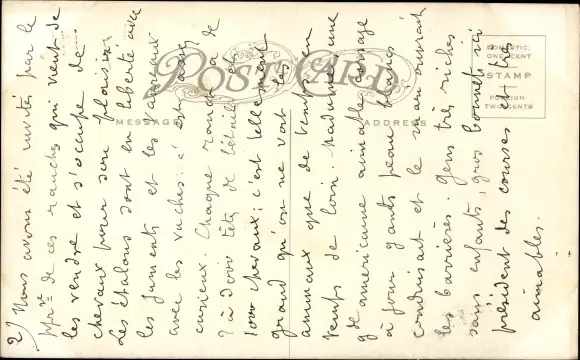 2) Nous avons été invités par le
ppre de ces ranches qui vient de
les vendre et s'occupe de
chevaux pour son plaisir.
Les étalons sont en liberté avec
les juments et les taureaux
avec les vaches. c'est assez
curieux. Chaque ranch a de
2 à 3000 têtes de bétail et
1000 chevaux ; c'est tellement
grand qu'on ne voit les
animaux que de temps en
temps de loin. Madame une
gde américaine aimable, corsage
à jour gants peau blancs
conduisait et le mari ouvrait
les barrières. Gens très riches
sans enfants, gros bonnets ici
président des courses et très
aimables.
POST CARD
MESSAGE
ADDRESS
DOMESTIC:
ONE CENT
STAMP
FOREIGN:
TWO CENTS